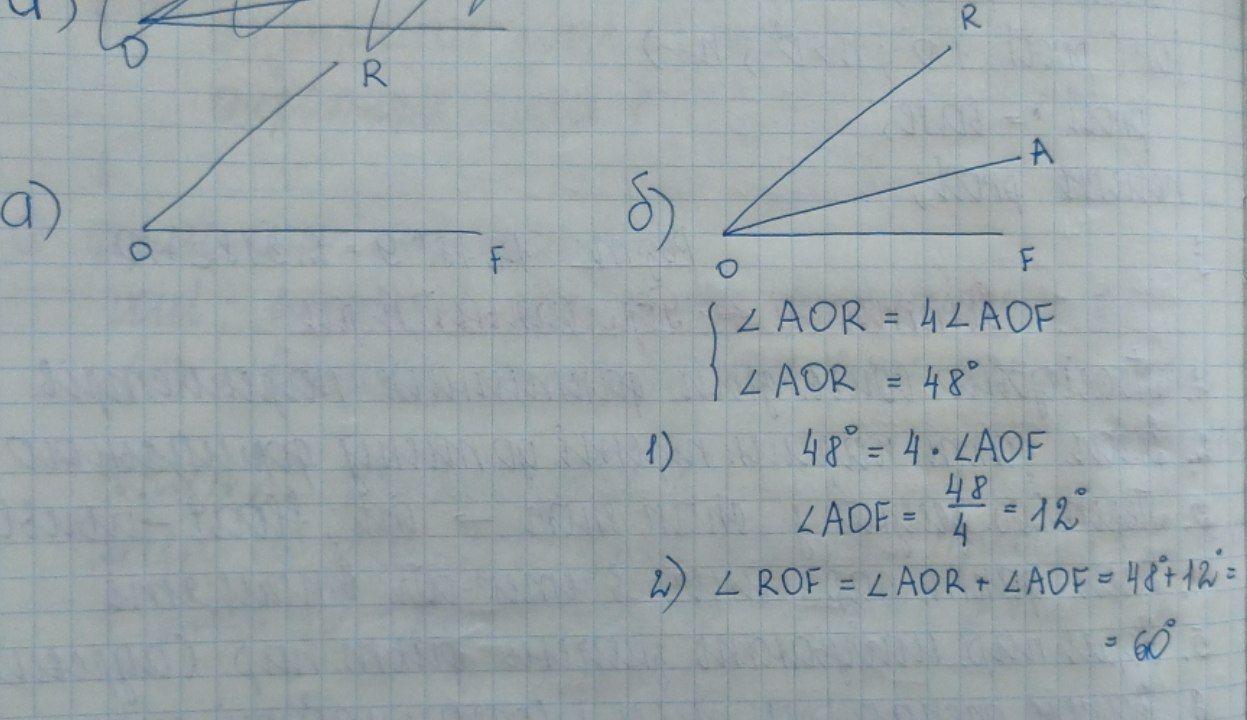 а)
O
R
а)
O
F
R
б)
A
O
F
∠AOR = 4∠AOF
∠AOR = 48°
1) 48° = 4 · ∠AOF
∠AOF = 48/4 = 12°
2) ∠ROF = ∠AOR + ∠AOF = 48° + 12° =
= 60°